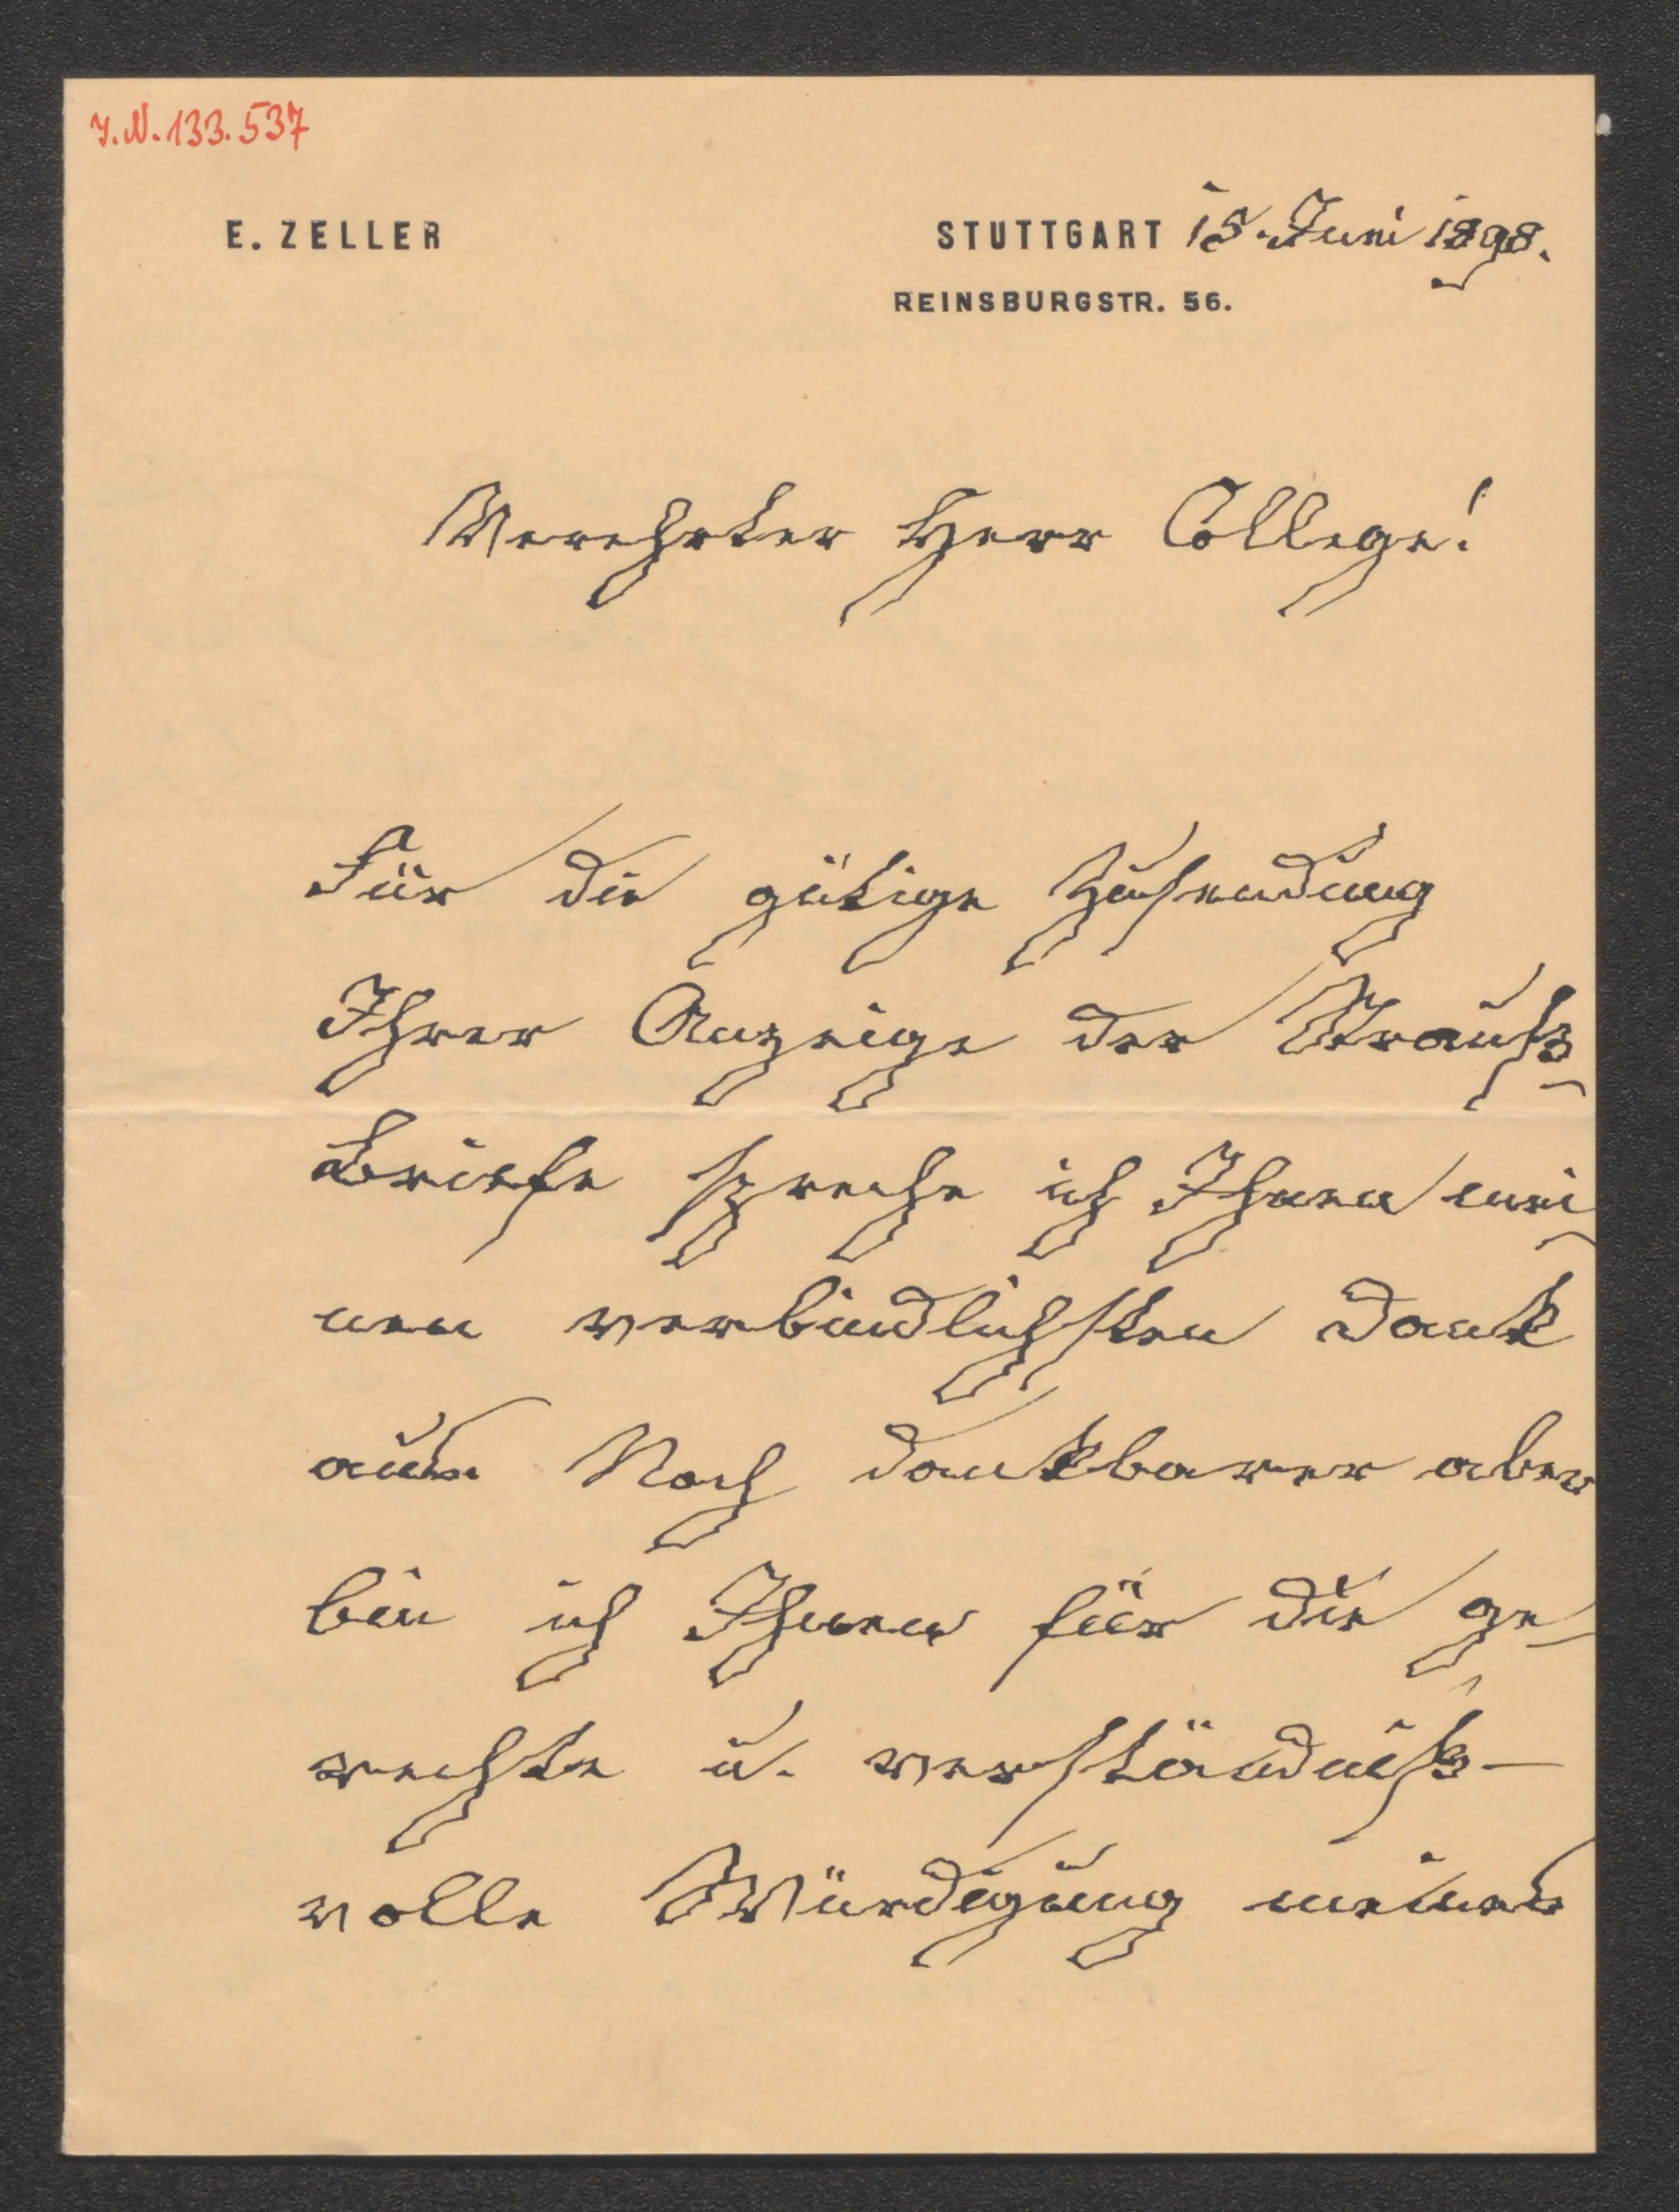 I.N. 133.537
E. ZELLER
STUTTGART 15. Juni 1898.
REINSBURGSTR. 56.
Verehrter Herr College!
Für die gütige Zusendung
Ihrer Anzeige der Strauß-
Briefe spreche ich Ihnen mei-
nen verbindlichsten Dank
aus. Noch dankbarer aber
bin ich Ihnen für die ge-
rechte u. verständniß-
volle Würdigung meines